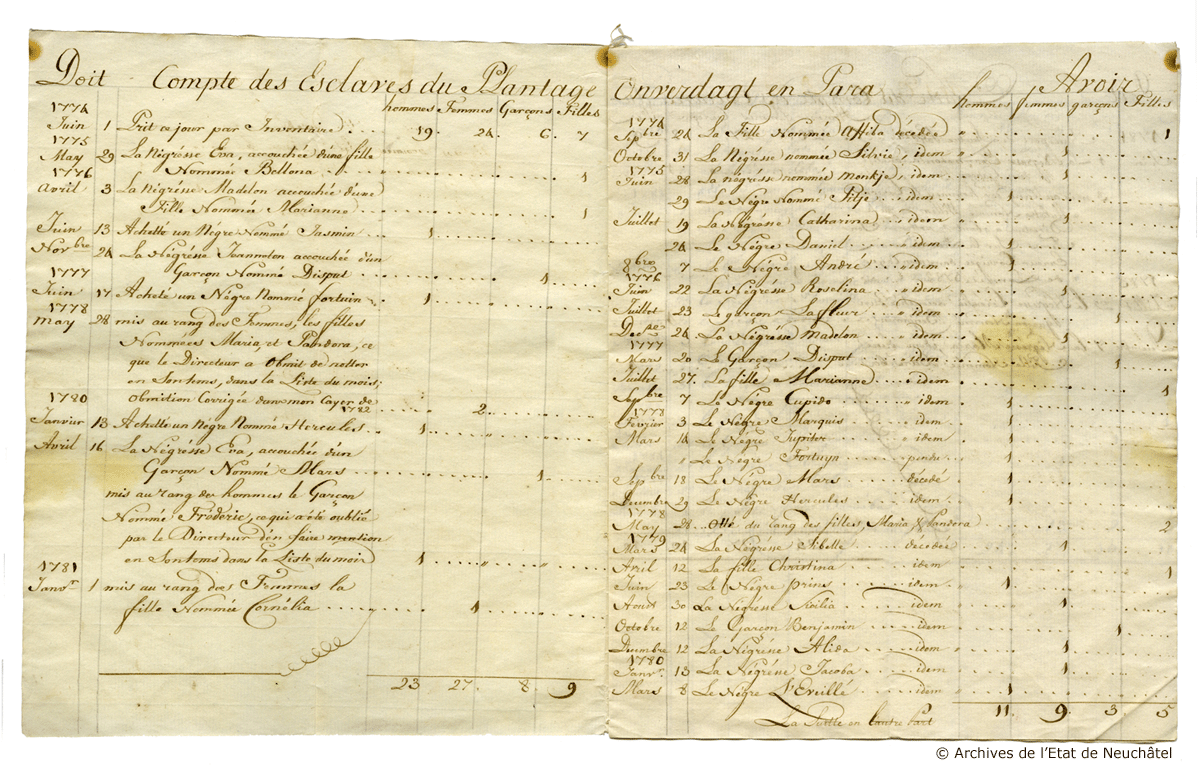 Doit Compte des Esclaves du Plantage
hommes Femmes Garçons Filles
1774
Juin 1 Prit ce jour par Inventaire 19 24 6 7
1775
May 29 La Négresse Eva, accouchée d'une fille
Nommée Bellona 1
1776
Avril 3 La Négrésse Madelon accouchée d'une
Fille Nommée Marianne 1
Juin 13 Achetté un Negre Nommé Jasmin 1
Novbre 24 La Négrésse Jeannelon accouchée d'un
Garçon Nommé Disput 1
1777
Juin 17 Acheté un Négre Nommé fortuin 1
1778
May 28 mis au rang des Femmes, les filles
Nommées Maria, et Pandora, ce
que le Directeur a Obmit de notter
en Sontems, dans la Liste du mois;
Obmition Corrigée dans mon Cayer de
1780 1782 2
Janvier 13 Achetté un Negre Nommé Hercules 1
Avril 16 La Négrésse Eva, accouchée d'un
Garçon Nommé Mars 1
mis au rang des hommes le Garçon
Nommé Fréderic, ce qui a été oublié
par le Directeur d'en faire mention
en Sontems dans la Liste du mois 1
1781
Janvr. 1 mis au rang des Femmes la
fille Nommée Cornélia 1
23 27 8 9
Onverdagt en Para Avoir
hommes femmes garçons Filles
1774
Sepbre 24 La Fille Nommée Affiba décédée 1
Octobre 31 La Négrésse nommée Silvie, idem 1
1775
Juin 28 La négrésse nommée monkje, idem 1
29 Le Négre Nommé Fitje idem 1
Juillet 19 La Négrésse Catharina idem 1
24 Le Négre Daniel idem 1
8bre 7 Le Négre André idem 1
1776
Juin 22 La Négrésse Roselina idem 1
Juillet 23 Le garçon Lafleur idem 1
Dec.re 24 La Négrésse Madelon idem 1
1777
Mars 20 Le Garçon Disput idem 1
Juillet 27 La fille Marianne idem 1
Sepbre 7 Le Négre Cupido idem 1
1778
Février 3 Le Négre Marquis idem 1
Mars 14 Le Négre Jupiter idem 1
1 Le Négre Fortuyn pendu 1
Sepbre 18 Le Négre Mars décédé 1
Decembre 29 Le Négre Hercules idem 1
1778
May 28 Otté du rang des filles, Maria & Pandora 2
1779
Mars 24 La Négrésse Sibelle décédée 1
Avril 12 La fille Christina idem 1
Juin 23 Le Négre prins idem 1
Aoust 30 La Négrésse idem 1
Octobre 12 Le Garçon Benjamin idem 1
Decembre 12 La Négrésse Alida idem 1
1780
Janvr. 13 La Négrésse Jacoba idem 1
Mars 8 Le Négre L'Eveillé idem 1
11 9 3 5
La Suitte en l'autre Part
© Archives de l'Etat de Neuchâtel